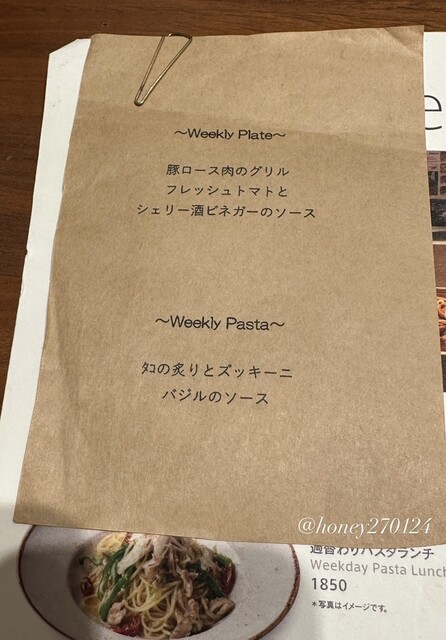 ～Weekly Plate～
豚ロース肉のグリル
フレッシュトマトと
シェリー酒ビネガーのソース
～Weekly Pasta～
ﾀｺの炙りとズッキーニ
バジルのソース
@honey270124
週替わりパスタランチ
Weekday Pasta Lunch
1850
＊写真はイメージです。